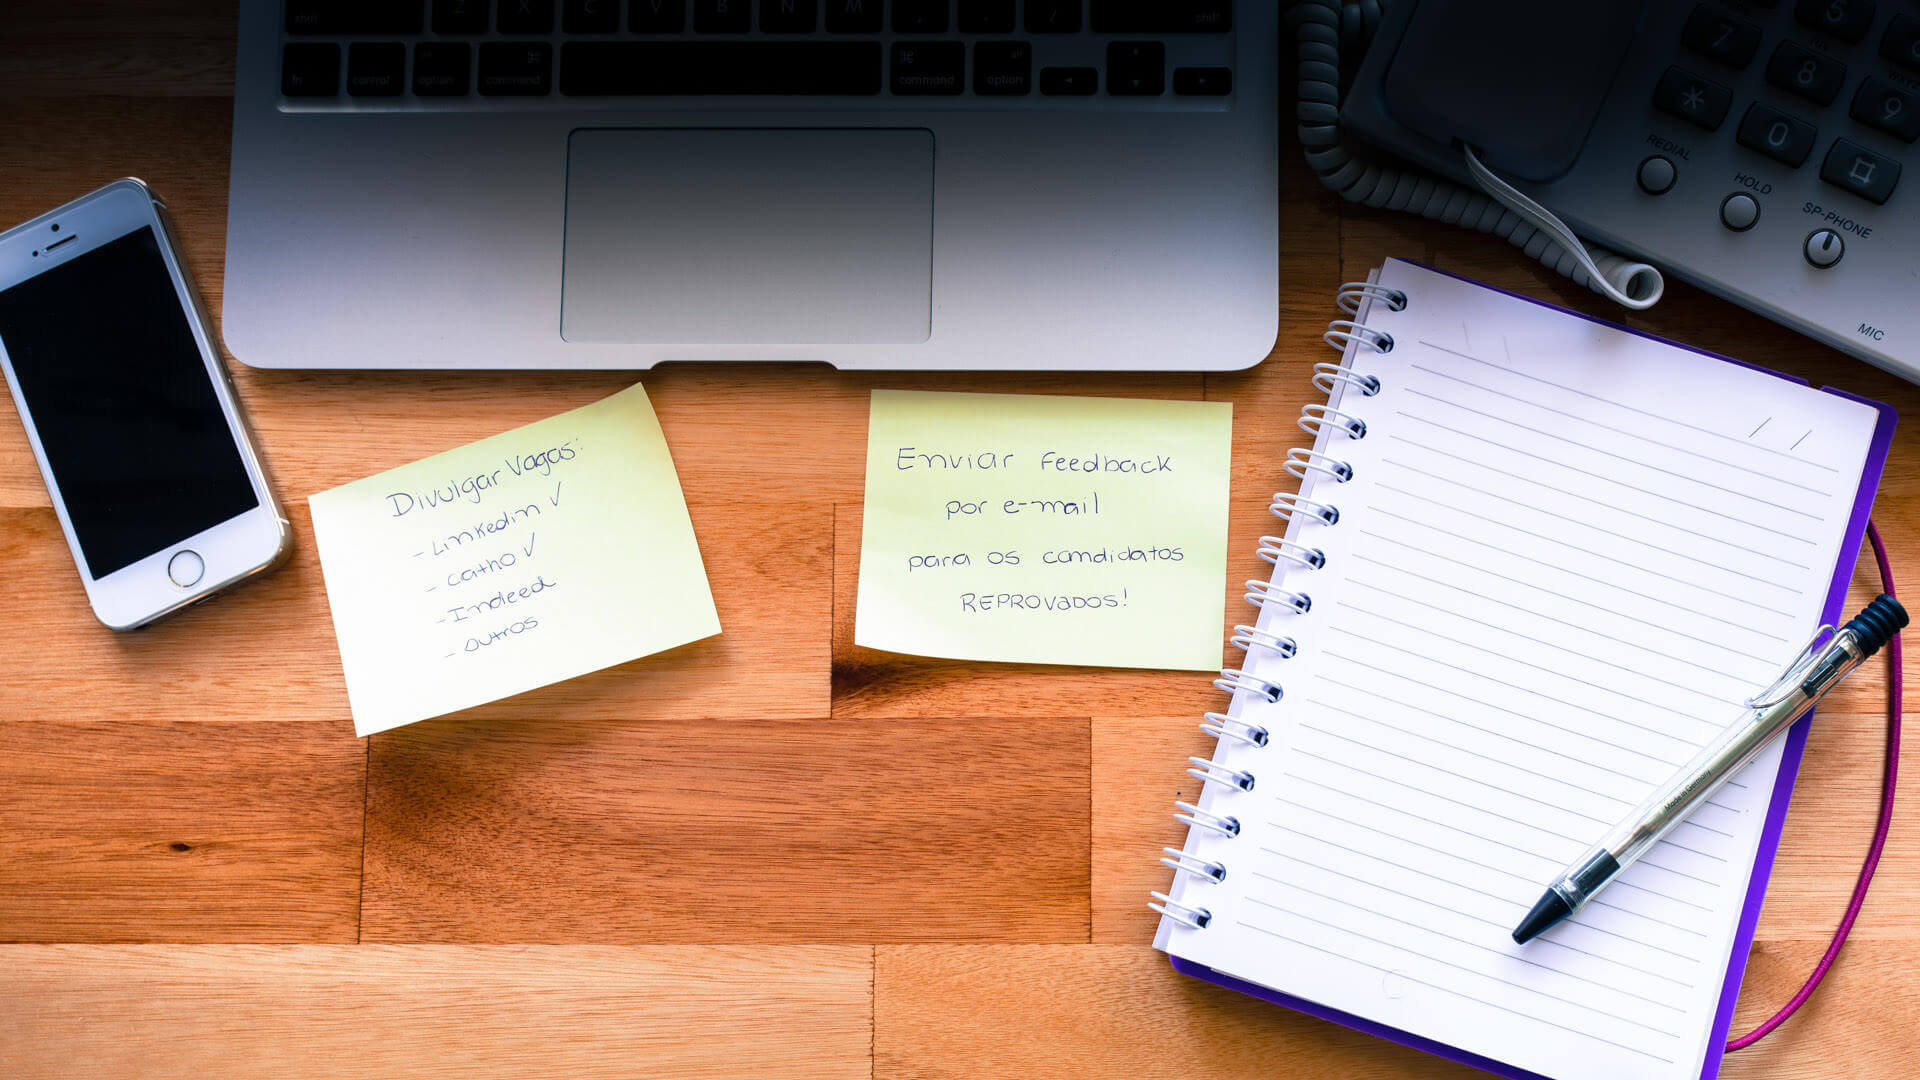 shift Z X C V B N M , . / shift
fn control option command command option
Divulgar Vagas:
- Linkedin ✓
- catho ✓
- Indeed
- outros
Enviar Feedback
por e-mail
para os candidatos
REPROVADOS!
5
7 8 9
* 0 #
REDIAL
HOLD
SP-PHONE
MIC
Made in Germany